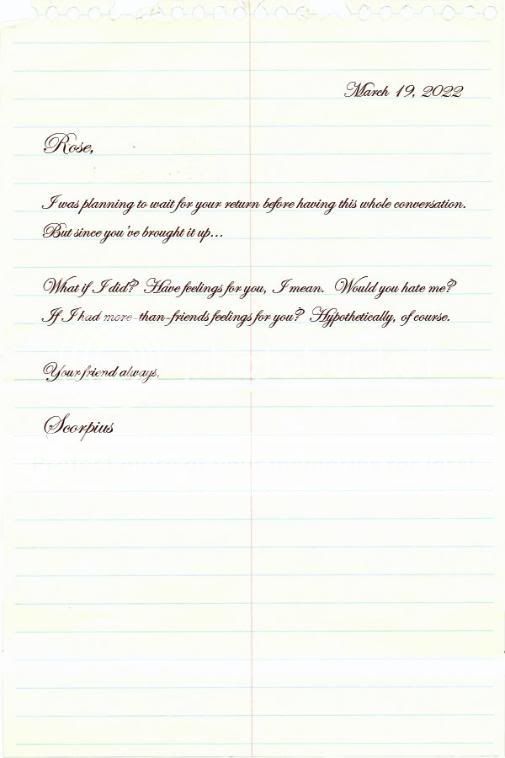 March 19, 2022
Rose,
I was planning to wait for your return before having this whole conversation.
But since you've brought it up...
What if I did? Have feelings for you, I mean. Would you hate me?
If I had more-than-friends feelings for you? Hypothetically, of course.
Your friend always,
Scorpius